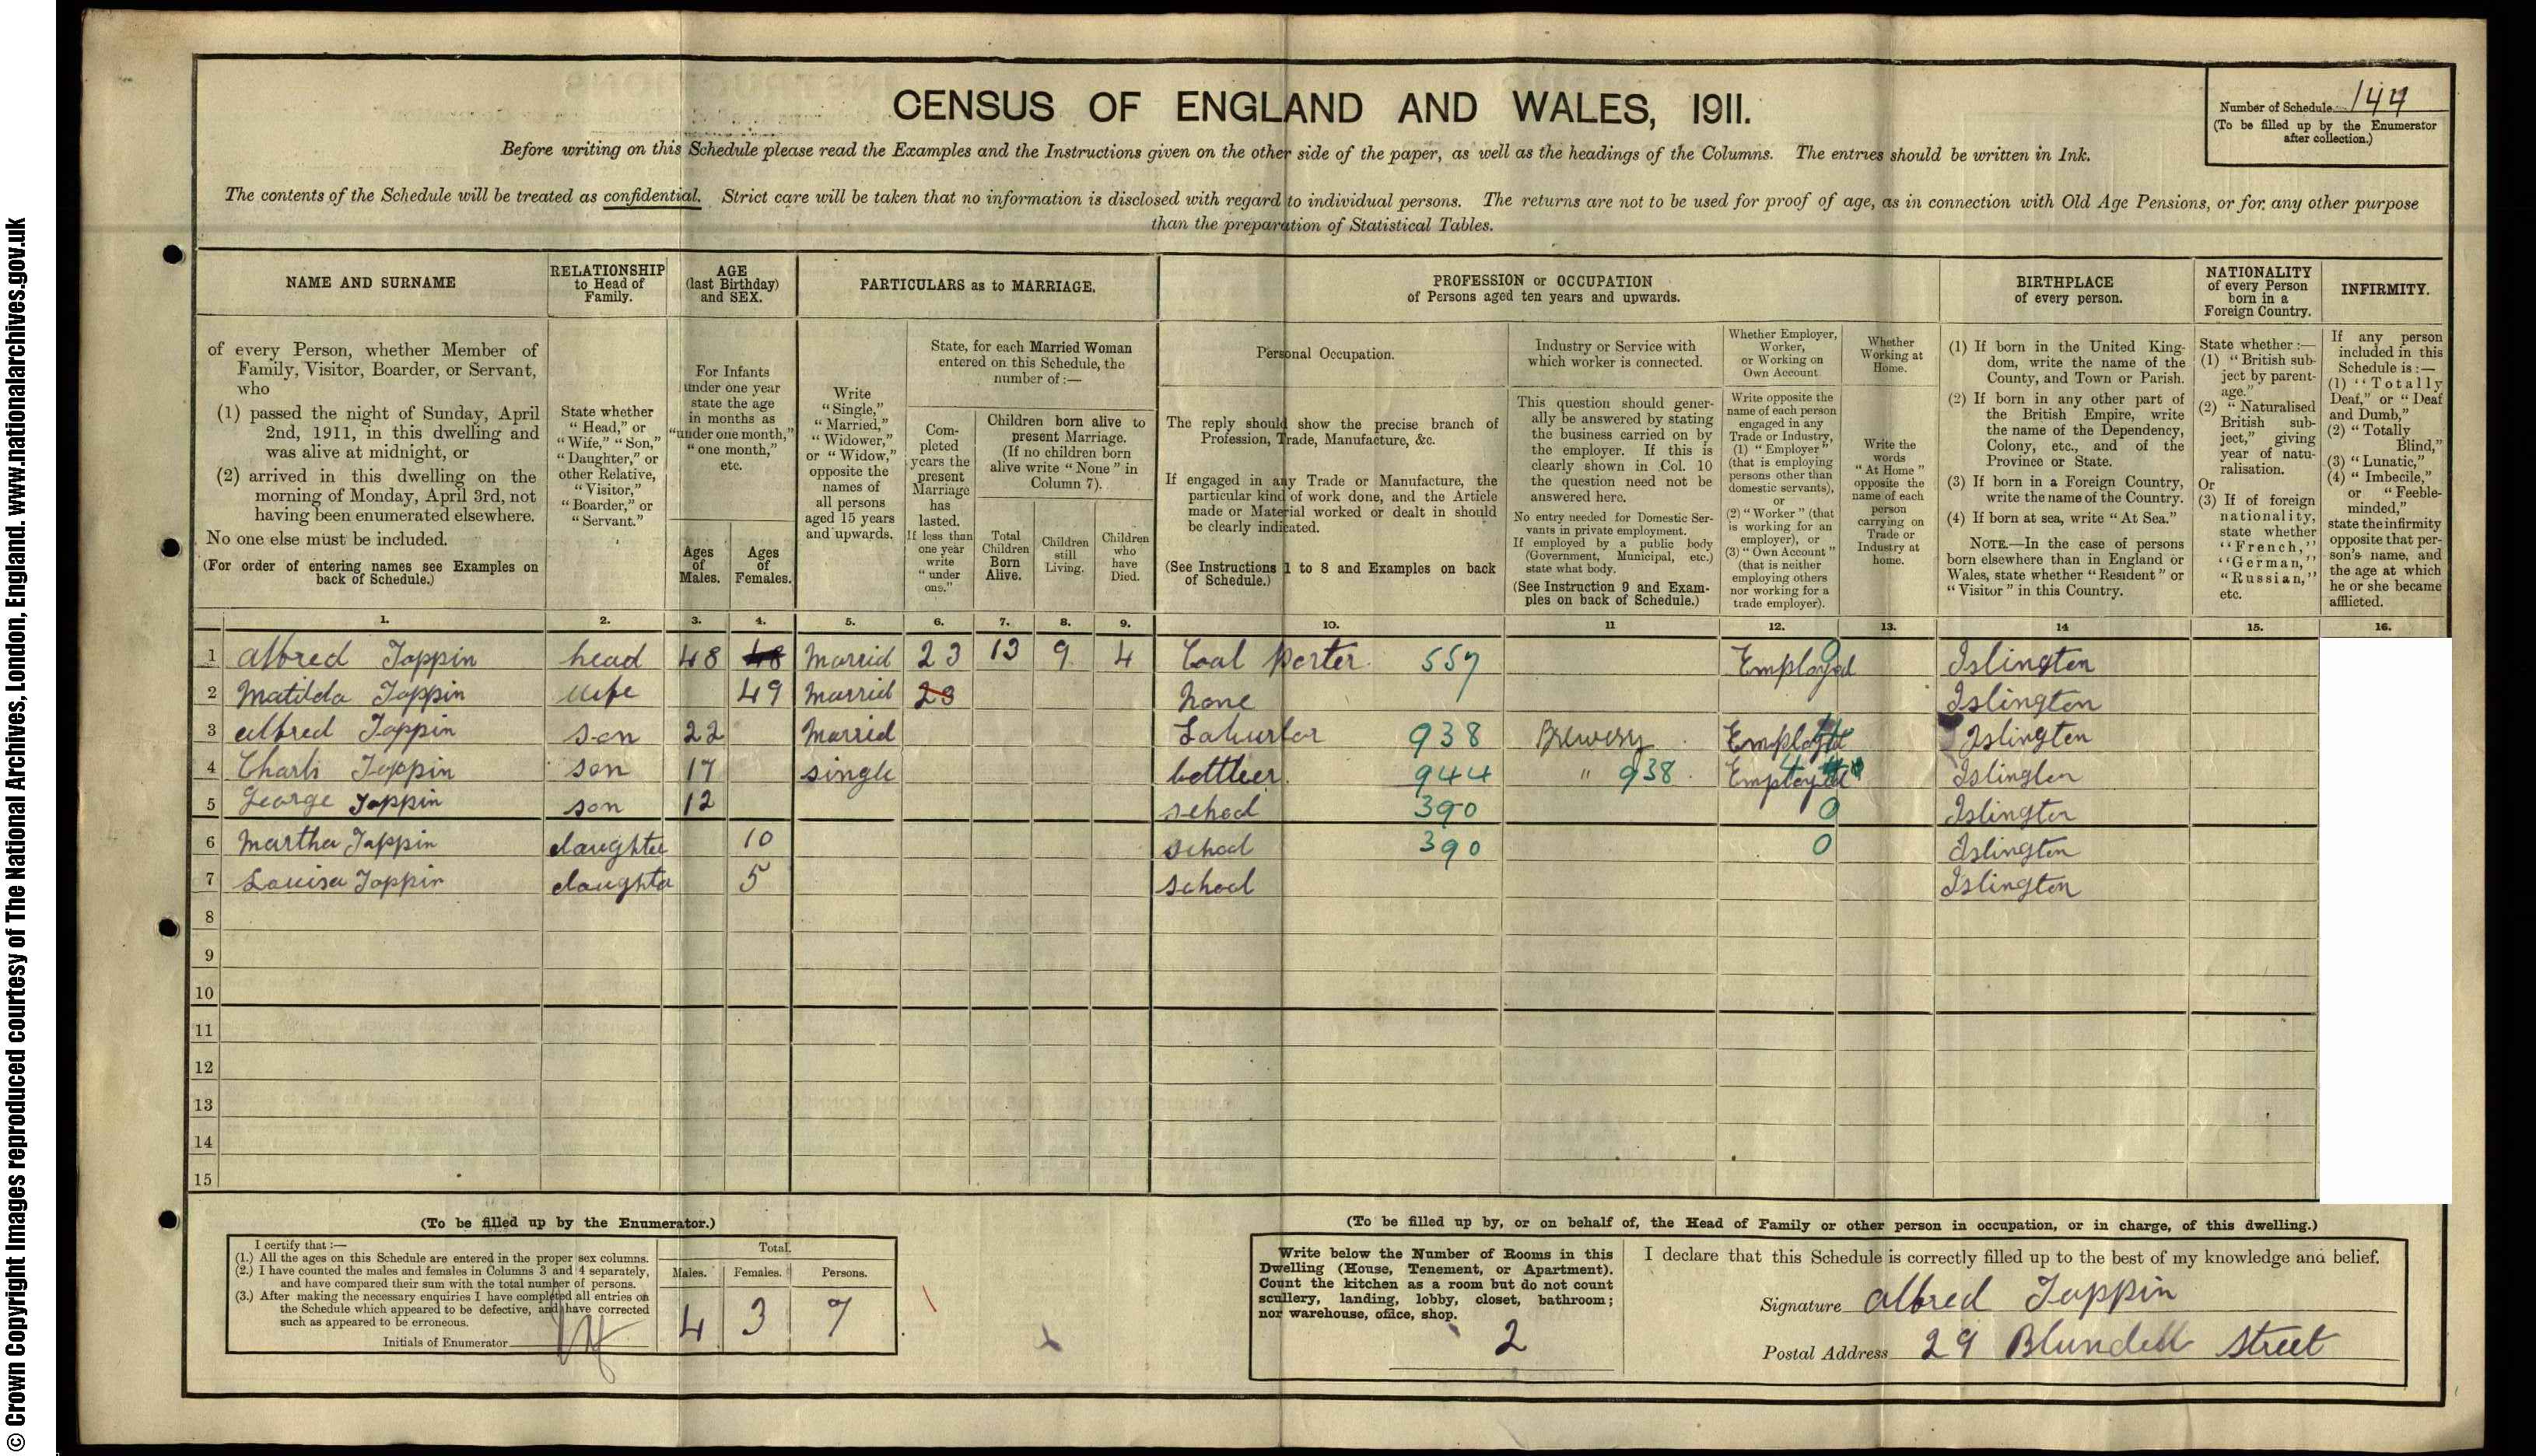 © Crown Copyright Images reproduced courtesy of The National Archives, London, England. www.nationalarchives.gov.uk
CENSUS OF ENGLAND AND WALES, 1911.
Number of Schedule 144
(To be filled up by the Enumerator
after collection.)
Before writing on this Schedule please read the Examples and the Instructions given on the other side of the paper, as well as the headings of the Columns. The entries should be written in Ink.
The contents of the Schedule will be treated as confidential. Strict care will be taken that no information is disclosed with regard to individual persons. The returns are not to be used for proof of age, as in connection with Old Age Pensions, or for any other purpose
than the preparation of Statistical Tables.
NAME AND SURNAME
of every Person, whether Member of
Family, Visitor, Boarder, or Servant,
who
(1) passed the night of Sunday, April
2nd, 1911, in this dwelling and
was alive at midnight, or
(2) arrived in this dwelling on the
morning of Monday, April 3rd, not
having been enumerated elsewhere.
No one else must be included.
(For order of entering names see Examples on
back of Schedule.)
RELATIONSHIP
to Head of
Family.
State whether
"Head," or
"Wife," "Son,"
"Daughter," or
other Relative,
"Visitor,"
"Boarder," or
"Servant."
AGE
(last Birthday)
and SEX.
For Infants
under one year
state the age
in months as
"under one month,"
"one month,"
etc.
Ages
of
Males.
Ages
of
Females.
PARTICULARS as to MARRIAGE.
Write
"Single,"
"Married,"
"Widower,"
or "Widow,"
opposite the
names of
all persons
aged 15 years
and upwards.
State, for each Married Woman
entered on this Schedule, the
number of:—
Com-
pleted
years the
present
Marriage
has
lasted.
If less than
one year
write
"under
one."
Children born alive to
present Marriage.
(If no children born
alive write "None" in
Column 7).
Total
Children
Born
Alive.
Children
still
Living.
Children
who
have
Died.
PROFESSION or OCCUPATION
of Persons aged ten years and upwards.
Personal Occupation.
The reply should show the precise branch of
Profession, Trade, Manufacture, &c.
If engaged in any Trade or Manufacture, the
particular kind of work done, and the Article
made or Material worked or dealt in should
be clearly indicated.
(See Instructions 1 to 8 and Examples on back
of Schedule.)
Industry or Service with
which worker is connected.
This question should gener-
ally be answered by stating
the business carried on by
the employer. If this is
clearly shown in Col. 10
the question need not be
answered here.
No entry needed for Domestic Ser-
vants in private employment.
If employed by a public body
(Government, Municipal, etc.)
state what body.
(See Instruction 9 and Exam-
ples on back of Schedule.)
Whether Employer,
Worker,
or Working on
Own Account
Write opposite the
name of each person
engaged in any
Trade or Industry,
(1) "Employer"
(that is employing
persons other than
domestic servants),
or
(2) "Worker" (that
is working for an
employer), or
(3) "Own Account"
(that is neither
employing others
nor working for a
trade employer).
Whether
Working at
Home.
Write the
words
"At Home"
opposite the
name of each
person
carrying on
Trade or
Industry at
home.
BIRTHPLACE
of every person.
(1) If born in the United King-
dom, write the name of the
County, and Town or Parish.
(2) If born in any other part of
the British Empire, write
the name of the Dependency,
Colony, etc., and of the
Province or State.
(3) If born in a Foreign Country,
write the name of the Country.
(4) If born at sea, write "At Sea."
NOTE.—In the case of persons
born elsewhere than in England or
Wales, state whether "Resident" or
"Visitor" in this Country.
NATIONALITY
of every Person
born in a
Foreign Country.
State whether:—
(1) "British sub-
ject by parent-
age."
(2) "Naturalised
British sub-
ject," giving
year of natu-
ralisation.
Or
(3) If of foreign
nationality,
state whether
"French,"
"German,"
"Russian,"
etc.
INFIRMITY.
If any person
included in this
Schedule is:—
(1) "Totally
Deaf," or "Deaf
and Dumb,"
(2) "Totally
Blind,"
(3) "Lunatic,"
(4) "Imbecile,"
or "Feeble-
minded,"
state the infirmity
opposite that per-
son's name, and
the age at which
he or she became
afflicted.
1. 2. 3. 4. 5. 6. 7. 8. 9. 10. 11 12. 13. 14 15. 16.
1 Alfred Toppin head 48 48 Marrid 23 13 9 4 Coal Porter 557 Employed 0 Islington
2 Matilda Toppin Wife 49 Marrid 23 None Islington
3 Alfred Toppin son 22 Marrid 938 Brewery Employed Islington
4 Charls Toppin son 17 single bottleer 944 " 938 Employed Islington
5 George Toppin son 12 school 390 0 Islington
6 Martha Toppin daughter 10 school 390 0 Islington
7 Louisa Toppin daughter 5 school Islington
8
9
10
11
12
13
14
15
(To be filled up by the Enumerator.)
I certify that:—
(1.) All the ages on this Schedule are entered in the proper sex columns.
(2.) I have counted the males and females in Columns 3 and 4 separately,
and have compared their sum with the total number of persons.
(3.) After making the necessary enquiries I have completed all entries on
the Schedule which appeared to be defective, and have corrected
such as appeared to be erroneous.
Initials of Enumerator
Total.
Males. Females. Persons.
4 3 7
(To be filled up by, or on behalf of, the Head of Family or other person in occupation, or in charge, of this dwelling.)
Write below the Number of Rooms in this
Dwelling (House, Tenement, or Apartment).
Count the kitchen as a room but do not count
scullery, landing, lobby, closet, bathroom;
nor warehouse, office, shop.
2
I declare that this Schedule is correctly filled up to the best of my knowledge and belief.
Signature Alfred Toppin
Postal Address 29 Blundell Street